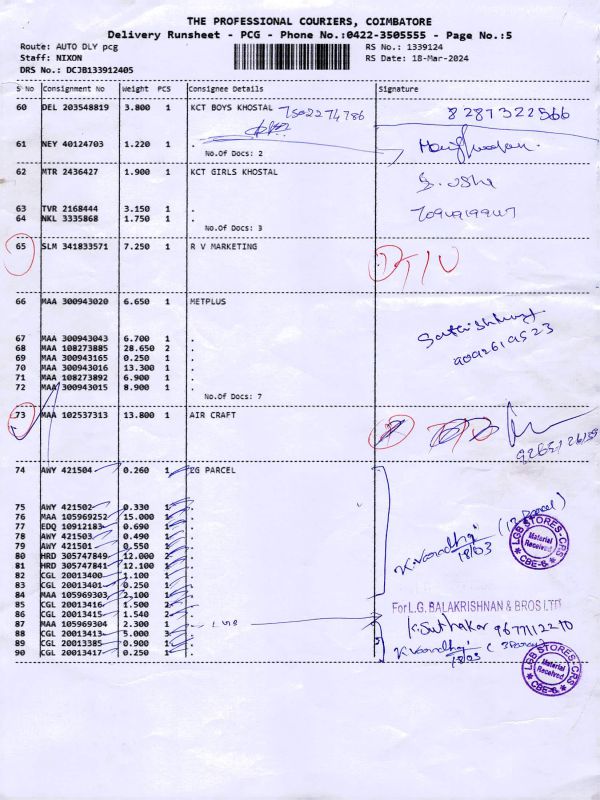 THE PROFESSIONAL COURIERS, COIMBATORE
Delivery Runsheet - PCG - Phone No.:0422-3505555 - Page No.:5
Route: AUTO DLY pcg RS No.: 1339124
Staff: NIXON RS Date: 18-Mar-2024
DRS No.: DCJB133912405
S No Consignment No Weight PCS Consignee Details Signature
60 DEL 203548819 3.800 1 KCT BOYS KHOSTAL 7502274786 8287322566
61 NEY 40124703 1.220 1 .
No.Of Docs: 2
62 MTR 2436427 1.900 1 KCT GIRLS KHOSTAL S. usha
63 TVR 2168444 3.150 1 .
64 NKL 3335868 1.750 1 .
No.Of Docs: 3
65 SLM 341833571 7.250 1 R V MARKETING
66 MAA 300943020 6.650 1 METPLUS
67 MAA 300943043 6.700 1 .
68 MAA 108273885 28.650 2 .
69 MAA 300943165 0.250 1 .
70 MAA 300943016 13.300 1 .
71 MAA 108273892 6.900 1 .
72 MAA 300943015 8.900 1 .
No.Of Docs: 7
73 MAA 102537313 13.800 1 AIR CRAFT
74 AWY 421504 0.260 1 LG PARCEL
75 AWY 421502 0.330 1 .
76 MAA 105969252 15.000 1 .
77 EDQ 10912183 0.690 1 .
78 AWY 421503 0.490 1 .
79 AWY 421501 0.550 1 .
80 HRD 305747849 12.000 2 .
81 HRD 305747841 12.100 1 .
82 CGL 20013400 1.100 1 .
83 CGL 20013401 0.250 1 .
84 MAA 105969303 2.100 1 .
85 CGL 20013416 1.500 2 .
86 CGL 20013415 1.540 2 .
87 MAA 105969304 2.300 1 .
88 CGL 20013413 5.000 3 .
89 CGL 20013385 0.900 1 .
90 CGL 20013417 0.250 1 .
18/03
LGB STORES-CRS
Material Received
CBE-6.
For L.G. BALAKRISHNAN & BROS LTD
K. Suthakar 9677112210
18/03
LGB STORES-CRS
Material Received
CBE-6.